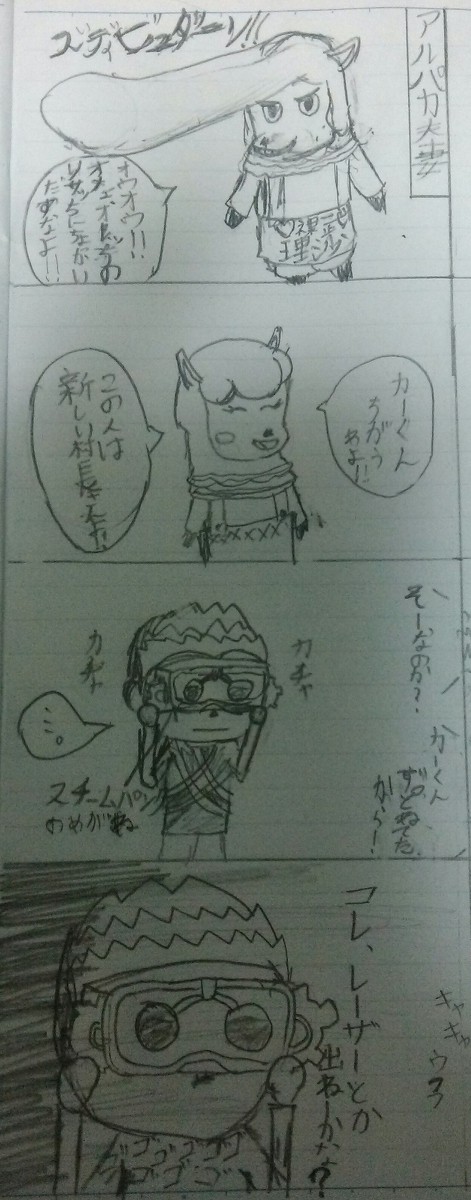 アルパカ夫妻
ズディビュダーン!!
オウオウ!!
オウェオレッチの
リサッちにながい
ためなよ!!
カーくん
ちがう
わよ!!
この人は
新しい村長さんだ
そーなのか?
かーくん
ずっとねてた
から!
カチャ
カチャ
…。
スチームパン
のめがね
コレ、レーザーとか
出ねーかな?
キャ
キャ
ウフフ
ゴゴゴゴゴ
ゴゴゴゴ